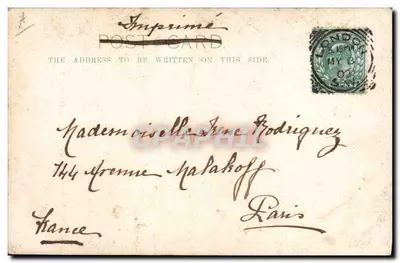 Imprimé
POST CARD
THE ADDRESS TO BE WRITTEN ON THIS SIDE.
LONDON
MY 8
02
Mademoiselle Irene Rodriguez
144 Avenue Malakoff
Paris
France